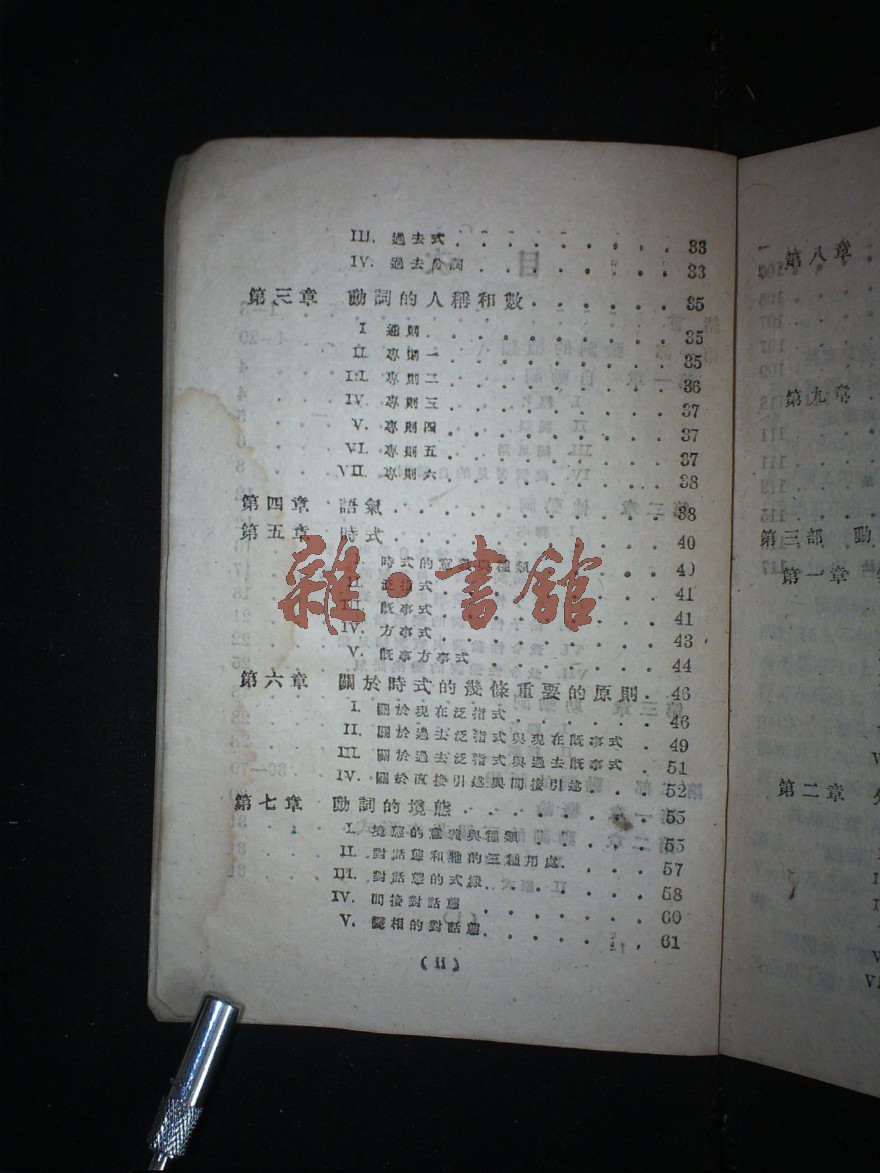 III. 過去式 33
IV. 過去分詞 33
第三章 動詞的人稱和數 35
I 通則 35
II. 專則一 35
III. 專則二 36
IV. 專則三 37
V. 專則四 37
VI. 專則五 37
VII. 專則六 38
第四章 語氣 38
第五章 時式 40
I. 時式的意義與種類 40
II. 泛指式 41
III. 既事式 41
IV. 方事式 43
V. 既事方事式 44
第六章 關於時式的幾條重要的原則 46
I. 關於現在泛指式 46
II. 關於過去泛指式與現在既事式 49
III. 關於過去泛指式與過去既事式 51
IV. 關於直接引述與間接引述 52
第七章 動詞的境態 55
I. 境態的意義與種類 55
II. 對話態和牠的三種用處 57
III. 對話態的式樣 58
IV. 間接對話態 60
V. 變相的對話態 61
(ii)
雜·書館
第八章
第九章
第三部 動
第一章
第二章